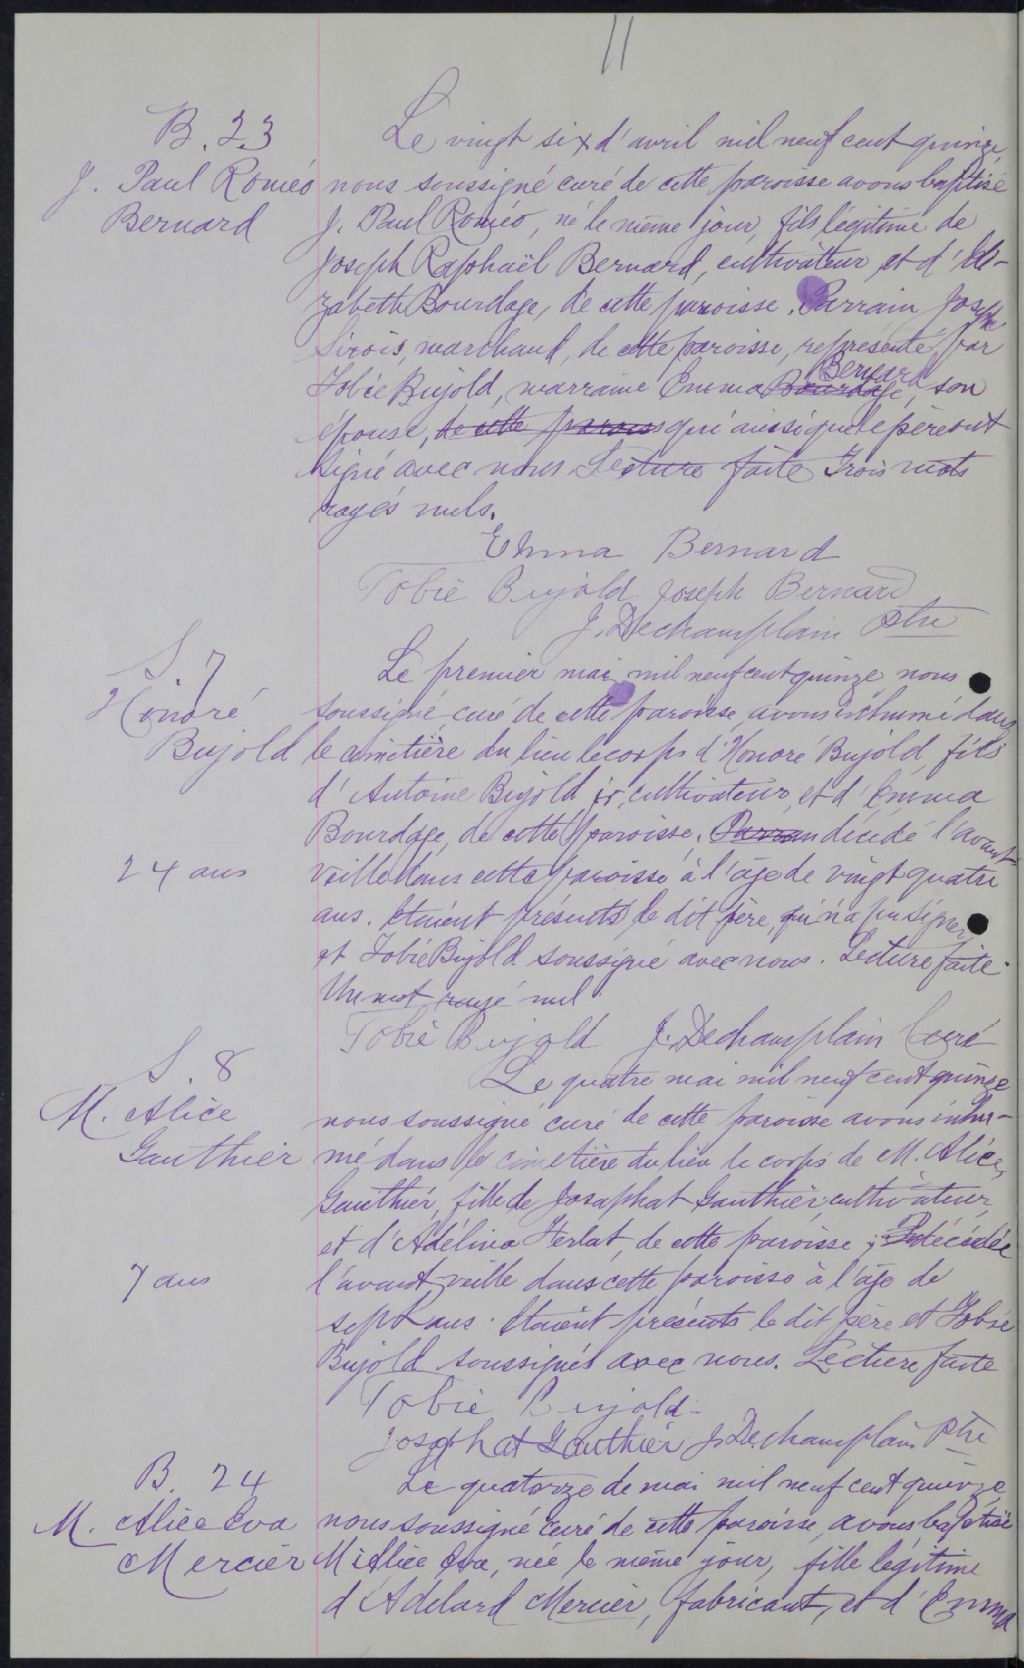 11
B. 23
J. Paul Roméo
Bernard
Le vingt six d'avril mil neuf cent quinze
nous soussigné curé de cette paroisse avons baptisé
J. Paul Roméo, né le même jour, fils légitime de
Joseph Raphaël Bernard, cultivateur et d'Eli-
zabeth Bourdage, de cette paroisse. Parrain Joseph
Sirois, marchand, de cette paroisse, représenté par
Tobie Bujold, marraine Emma Bourdage Bernard, son
épouse, de cette parois qui ainsi que le père ont
signé avec nous. Lecture faite Trois mots
rayés nuls.
Emma Bernard
Tobie Bujold Joseph Bernard
J. Dechamplain Ptre
S. 7
Honoré
Bujold
24 ans
Le premier mai mil neuf cent quinze nous
soussigné curé de cette paroisse avons inhumé dans
le cimetière du lieu le corps d'Honoré Bujold, fils
d'Antoine Bujold, jr, cultivateur, et d'Emma
Bourdage, de cette paroisse. Parrain décédé l'avant
veille dans cette paroisse à l'âge de vingt quatre
ans. Etaient présents le dit père, qui n'a pu signer,
et Tobie Bujold soussigné avec nous. Lecture faite.
Un mot rayé nul
Tobie Bujold J. Dechamplain Curé
S. 8
M. Alice
Gauthier
7 ans
Le quatre mai mil neuf cent quinze
nous soussigné curé de cette paroisse avons inhu-
mé dans le cimetière du lieu le corps de M. Alice
Gauthier, fille de Josaphat Gauthier, cultivateur,
et d'Adélina Herlat, de cette paroisse; décédée
l'avant-veille dans cette paroisse à l'âge de
sept ans. Etaient présents le dit père et Tobie
Bujold soussignés avec nous. Lecture faite
Tobie Bujold
Josaphat Gauthier J. Dechamplain Ptre
B. 24
M. Alice Eva
Mercier
Le quatorze de mai mil neuf cent quinze
nous soussigné curé de cette paroisse avons baptisé
M. Alice Eva, née le même jour, fille légitime
d'Adélard Mercier, fabricant, et d'Emma